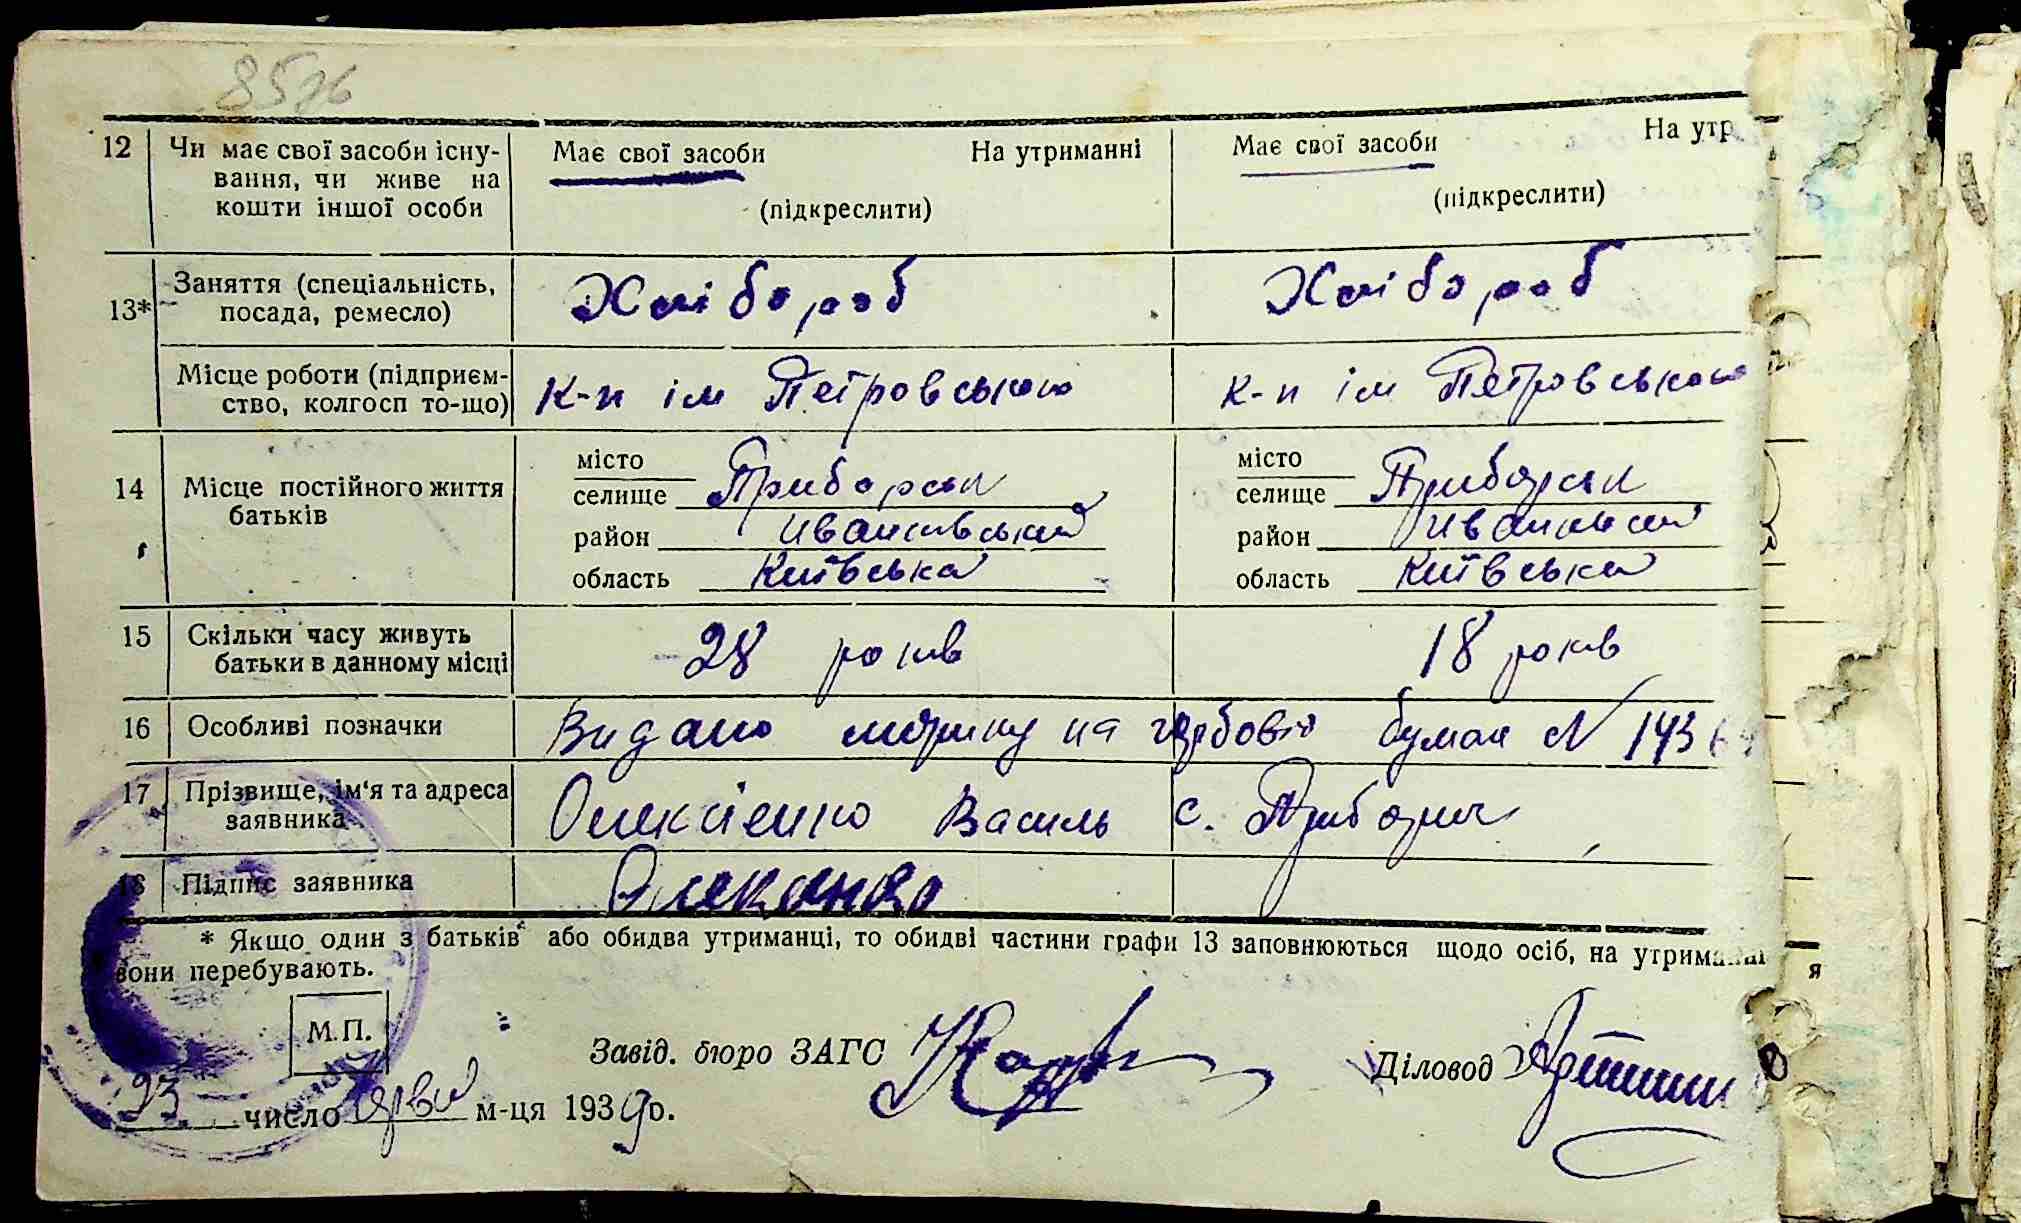 85
12 Чи має свої засоби існу-
вання, чи живе на
кошти іншої особи
Має свої засоби На утриманні
(підкреслити)
Має свої засоби На утр
(підкреслити)
13* Заняття (спеціальність,
посада, ремесло)
Хлібороб Хлібороб
Місце роботи (підприєм-
ство, колгосп то-що)
к-п ім Петровського к-п ім Петровського
14 Місце постійного життя
батьків
місто
селище Приборськ
район Иванківський
область Київська
місто
селище Приборськ
район
область Київська
15 Скільки часу живуть
батьки в данному місці
28 років 18 років
16 Особливі позначки
Видано на гербовій N 143
17 Прізвище, ім'я та адреса
заявника
Олексієнко Василь с.
18 Підпис заявника
* Якщо один з батьків або обидва утриманці, то обидві частини графи 13 заповнюються щодо осіб, на утриманні
вони перебувають.
М.П.
Завід. бюро ЗАГС
Діловод
23 число червн м-ця 1939 р.
я